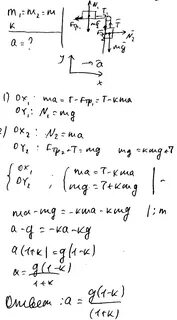 m₁=m₂=m
K
a=?
N₁
T
T
Fтр.
mg
N₂
mg
y
a
x
1) OX₁: ma=T-Fтр₁=T-Kmg
OY₁: N₁=mg
2) OX₂: N₂=ma
OY₂: Fтр₂+T=mg mg=Kma+T
{ OX₁ ; { ma=T-Kmg | -
OY₂ mg=T+Kma
ma-mg=-Kma-Kmg |:m
a-g=-Ka-Kg
a(1+K)=g(1-K)
a=g(1-K)/1+K
Ответ: a=g(1-K)/(1+K)